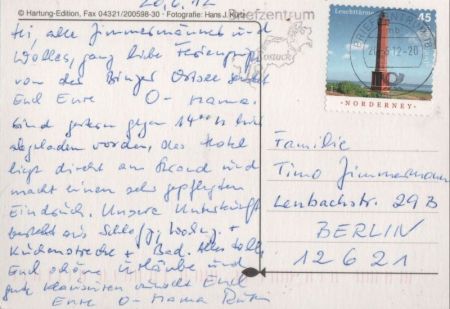 20.6.12
© Hartung-Edition, Fax 04321/200598-30 · Fotografie: Hans J. Kürtz
Hi, alle Zimmermänner und
Wolles, ganz liebe Feriengrüße
von der Binzer Ostsee sendet
Euch Eure O-Mama.
Sind gestern gegen 14⁰⁰ h hier
abgeladen worden, das Hotel
liegt direkt am Strand und
macht einen sehr gepflegten
Eindruck. Unsere Unterkunft
besteht aus Schlafz., Wohnz. +
Küchenstrecke + Bad. Alles toll,
Euch schöne Urlaube und
gute Klausuren wünscht Euch
Eure O-Mama
Briefzentrum
Rostock
Leuchttürme
45
BRIEFZENTRUM 18
mb
20.6.12-20
NORDERNEY
Familie
Timo Zimmermann
Lenbachstr. 29B
BERLIN
12621